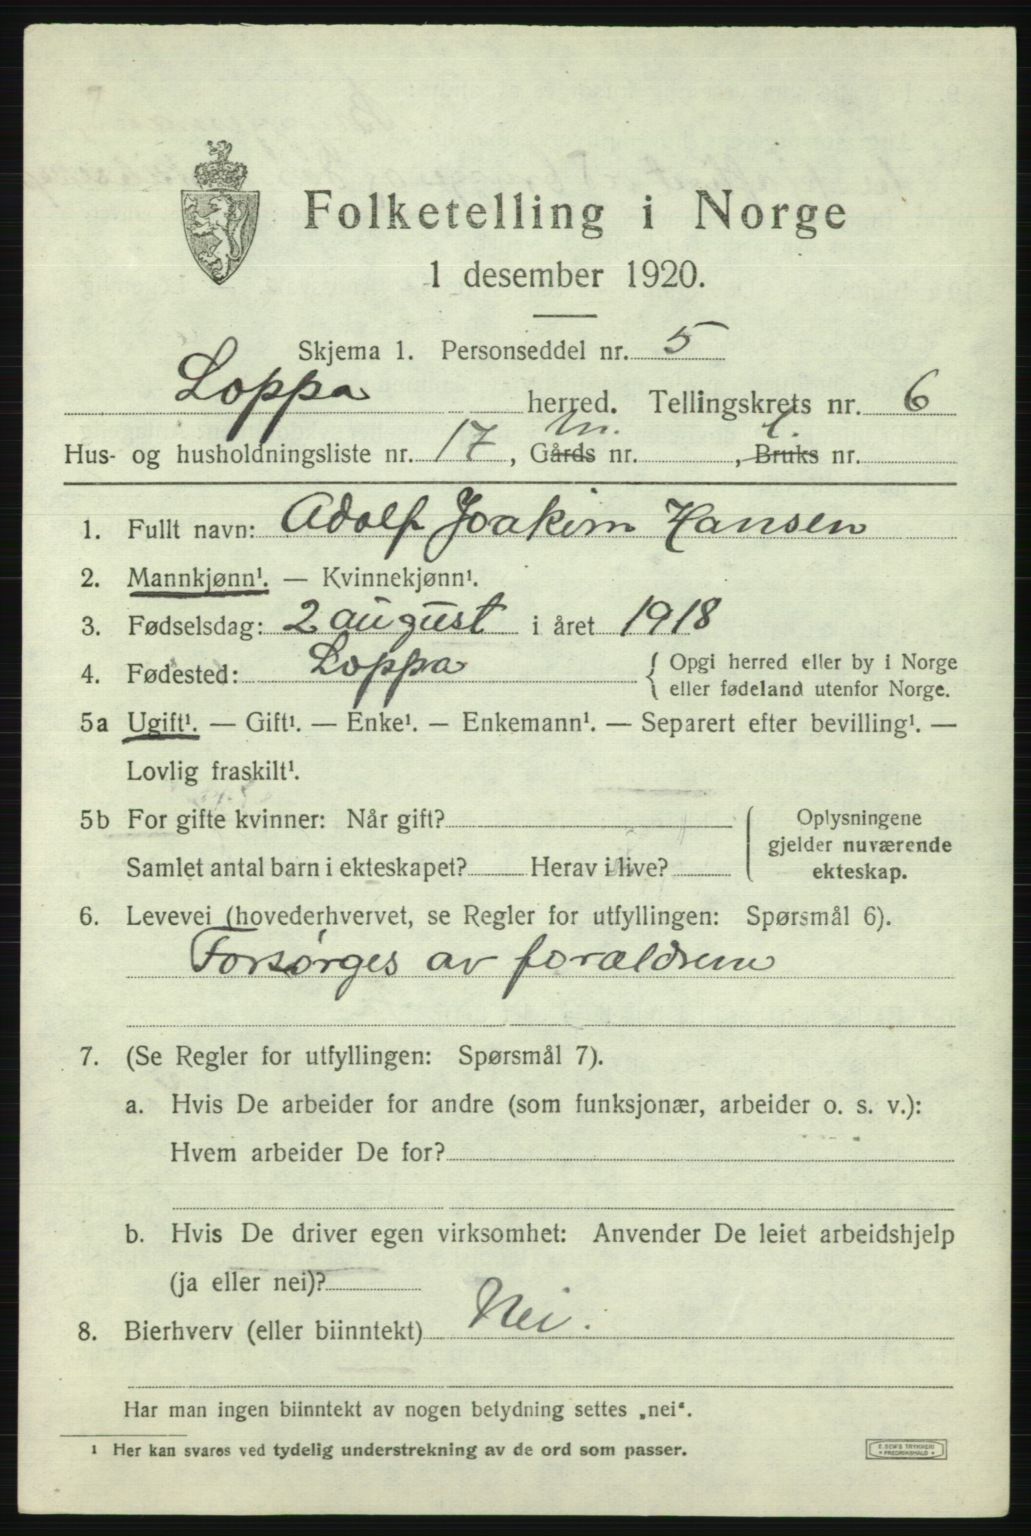 Folketelling i Norge
1 desember 1920.
Skjema 1. Personseddel nr. 5
Loppa herred. Tellingskrets nr. 6
Hus- og husholdningsliste nr. 17, Gårds nr. , Bruks nr.
1. Fullt navn: Adolf Joakim Hansen
2. Mannkjønn¹. — Kvinnekjønn¹.
3. Fødselsdag: 2 august i året 1918
4. Fødested: Loppa { Opgi herred eller by i Norge
eller fødeland utenfor Norge.
5a Ugift¹. — Gift¹. — Enke¹. — Enkemann¹. — Separert efter bevilling¹. —
Lovlig fraskilt¹.
5b For gifte kvinner: Når gift?
Samlet antal barn i ekteskapet? Herav i live?
Oplysningene
gjelder nuværende
ekteskap.
6. Levevei (hovederhvervet, se Regler for utfyllingen: Spørsmål 6).
Forsørges av forældrene
7. (Se Regler for utfyllingen: Spørsmål 7).
a. Hvis De arbeider for andre (som funksjonær, arbeider o. s. v.):
Hvem arbeider De for?
b. Hvis De driver egen virksomhet: Anvender De leiet arbeidshjelp
(ja eller nei)?
8. Bierhverv (eller biinntekt) Nei.
Har man ingen biinntekt av nogen betydning settes „nei“.
¹ Her kan svares ved tydelig understrekning av de ord som passer.